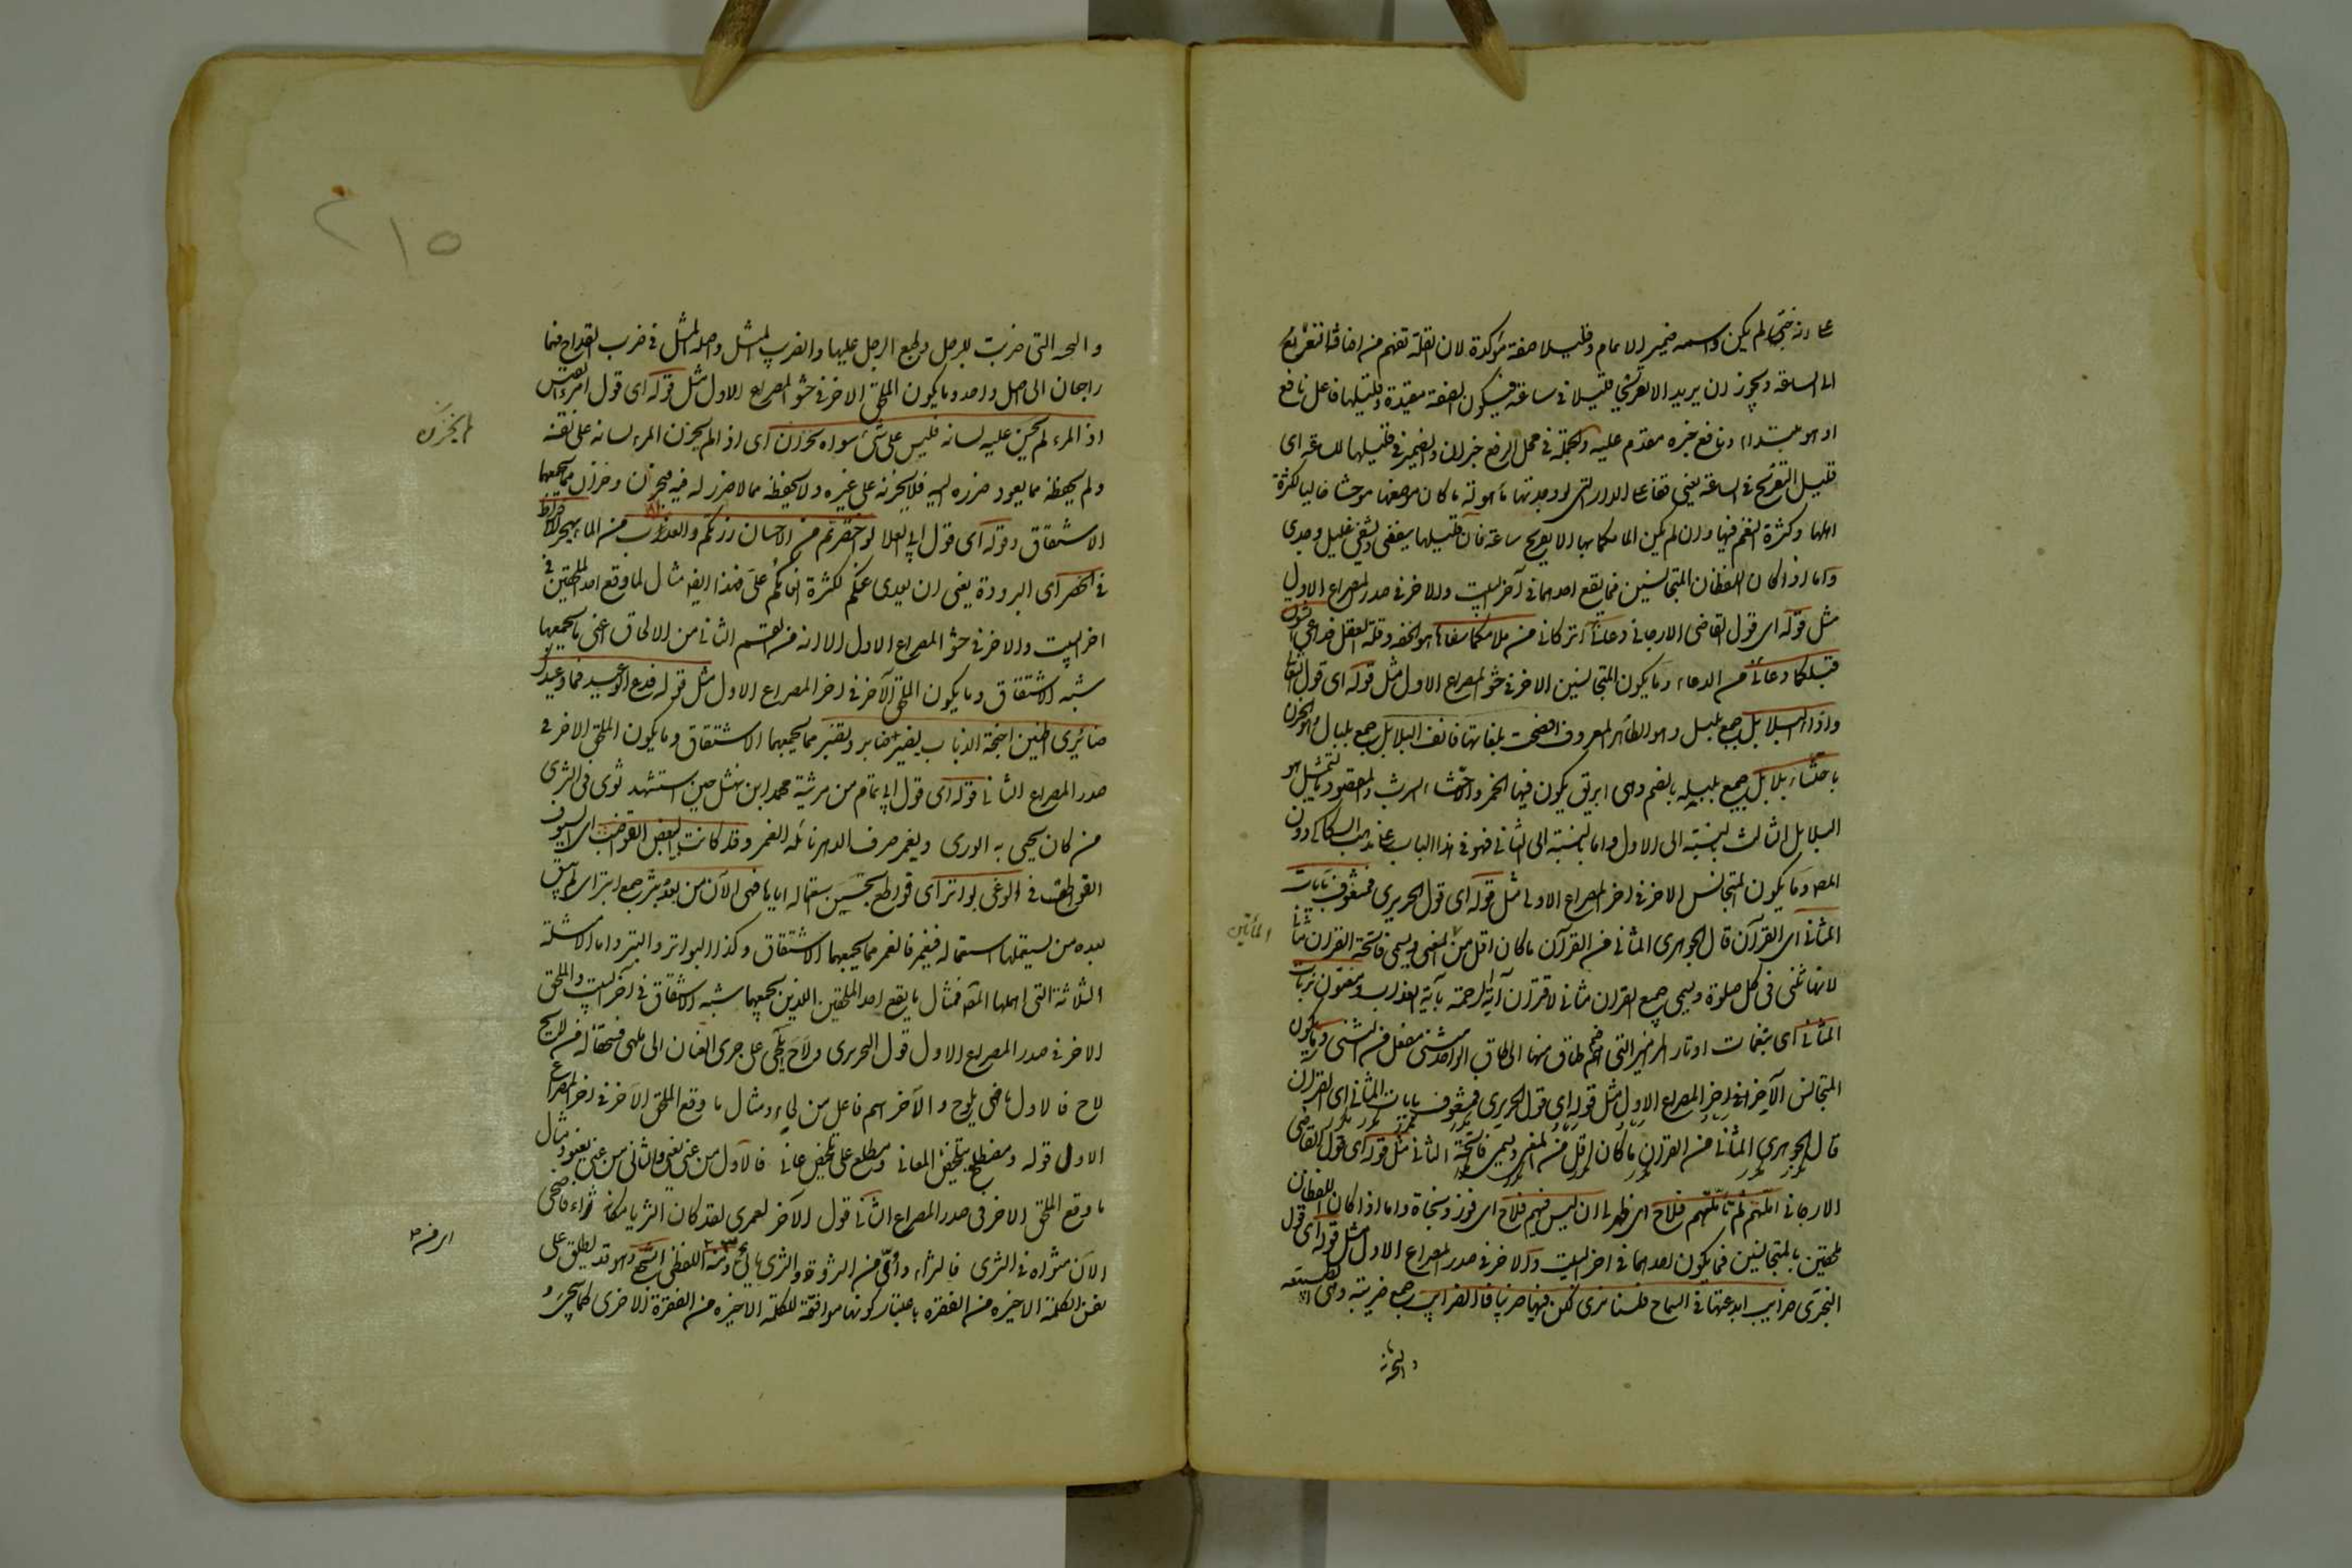 على انه خبر لم يكن واسمه ضمير الالمام وقليلا صفة مؤكدة لان القلة تفهم من اضافة التعريج
الى الساعة ويجوز ان يريد الا تعريجا قليلا في ساعة فيكون الصفة مقيدة وقليلها فاعل نافع
او هو مبتداء ونافع خبره مقدم عليه والجملة في محل الرفع خبر ان والضمير في قليلها للساعة اى
قليل التعريج في الساعة يعنى قفا على الدار التى لو وجدتها مأهولة ما كان موضعها موحشا خاليا لكثرة
اهلها وكثرة النعم فيها وان لم يكن المامكما بها الا تعريج ساعة فان قليلها ينفعنى ويشفى غليل وجدى
واما اذا كان اللفظان المتجانسين فما يقع احدهما في آخر البيت والاخر في صدر المصراع الاول
مثل قوله اى قول القاضى الارجانى دعانى اتركانى من ملامكما سفاها هو الخفة وقلة العقل فداعى الشوق
قبلكما دعانى من الدعاء وما يكون المتجانسين الاخر في حشو المصراع الاول مثل قوله اى قول الثعالبى
واذا البلابل جمع بلبل وهو الطائر المعروف افصحت بلغاتها فانف البلابل جمع بلبال وهو الحزن
باحتساء بلابل جمع بلبله بالضم وهى ابريق يكون فيها الخمر والاحتساء الشرب والمقصود بالتمثيل هو
البلابل الثالث بالنسبة الى الاول واما بالنسبة الى الثانى فهو في هذا الباب على مذهب السكاكى دون
المصه وما يكون المتجانس الاخر في اخر المصراع الاول مثل قوله اى قول الحريرى فمشغوف بآيات
المثانى اى القرآن قال الجوهرى المثانى من القرآن ما كان اقل من المئين ويسمى فاتحة القران مثانى
المأتين
لانها تثنى في كل صلوة ويسمى جميع القران مثانى لاقتران آية الرحمة بآية العذاب ومفتون برنات
المثانى اى بنغمات اوتار المزامير التى ضم طاق منها الى طاق الواحد مثنى مفعل من الثنى وما يكون
المتجانس الآخر في اخر المصراع الاول مثل قوله اى قول الحريرى فمشغوف بايات المثانى اى القران
قال الجوهرى المثانى من القران ما كان اقل من المئين ويسمى فاتحة الثانى مثل قوله اى قول القاضى
الارجانى املتهم ثم تأملتهم فلاح اى ظهر لى ان ليس فيهم فلاح اى فوز ونجاة واما اذا كان اللفظان
ملحقين بالمتجانسين فما يكون احدهما في اخر البيت والاخر في صدر المصراع الاول مثل قوله اى قول
البحترى ضرايب ابدعتها في السماح فلسنا نرى لك فيها ضريبا فالضرايب جمع ضريبة وهى الطبيعة
والسجية
٢١٥
والسجية التى ضربت للرجل وطبع الرجل عليها والضريب المثل واصله المثل في ضرب القداح فهما
راجعان الى اصل واحد وما يكون الملحق الاخر في حشو المصراع الاول مثل قوله اى قول امرؤ القيس
اذا المرء لم يخزن عليه لسانه فليس على شئ سواه بخزان اى اذا لم يخزن المرء لسانه على نفسه
ولم يحفظه مما يعود ضرره اليه فلا يخزنه على غيره ولا يحفظه مما لا ضرر له فيه فيخزن وخزان مما يجمعهما
الاشتقاق وقوله اى قول ابى العلا لو اختصرتم من الاحسان زرتكم والعذب من الماء يهجر للافراط
في الخصر اى البرودة يعنى ان بعدى عنكم لكثرة انعامكم على فهذا ايضا مثال لما وقع احد الملحقين في
اخر البيت والاخر في حشو المصراع الاول الا انه من القسم الثانى من الالحاق اعنى ما يجمعهما
شبه الاشتقاق وما يكون الملحق الآخر في اخر المصراع الاول مثل قوله فدع الوعيد فما وعيدك
ضائرى اطنين اجنحة الذباب يضير ضاير ويضير مما يجمعهما الاشتقاق وما يكون الملحق الاخر في
صدر المصراع الثانى قوله اى قول ابى تمام من مرثية محمد ابن نهشل حين استشهد ثوى في الثرى
من كان يحيى به الورى ويغمر صرف الدهر نائله الغمر وقد كانت البيض القواضب اى السيوف
القواطع في الوغى بواتر اى قواطع بحسن استعماله اياها فهى الآن من بعده بتر جمع ابتر اى لم يبق
بعده من يستعملها استعماله فيغمر فالغمر مما يجمعهما الاشتقاق وكذا البواتر والبتر واما الامثلة
الثلاثة التى اهملها المصه فمثال ما يقع احد الملحقين اللذين يجمعهما شبه الاشتقاق في آخر البيت والملحق
الاخر في صدر المصراع الاول قول الحريرى ولاح يلحى على جرى العنان الى ملهى فسحقا له من لائح
لاح فالاول ماضى يلوح والآخر اسم فاعل من لحاه ومثال ما وقع الملحق الاخر في اخر المصراع
الاول قوله ومضطلع بتلخيص المعانى ومطلع على تخليص عانى فالاول من عنى يعنى والثانى من عنى يعنو ومثال
ما وقع الملحق الاخر في صدر المصراع الثانى قول الآخر لعمرى لقد كان الثريا مكانه ثراء فاضحى
الآن مثواه في الثرى فالثراء واوى من الثروة والثرى يائى ومنه اى من اللفظى السجع وهو قد يطلق على
نفس الكلمة الاخيره من الفقره باعتبار كونها موافقة للكلمة الاخيره من الفقرة الاخرى كما سيجئ و
لم يخزن
اى من